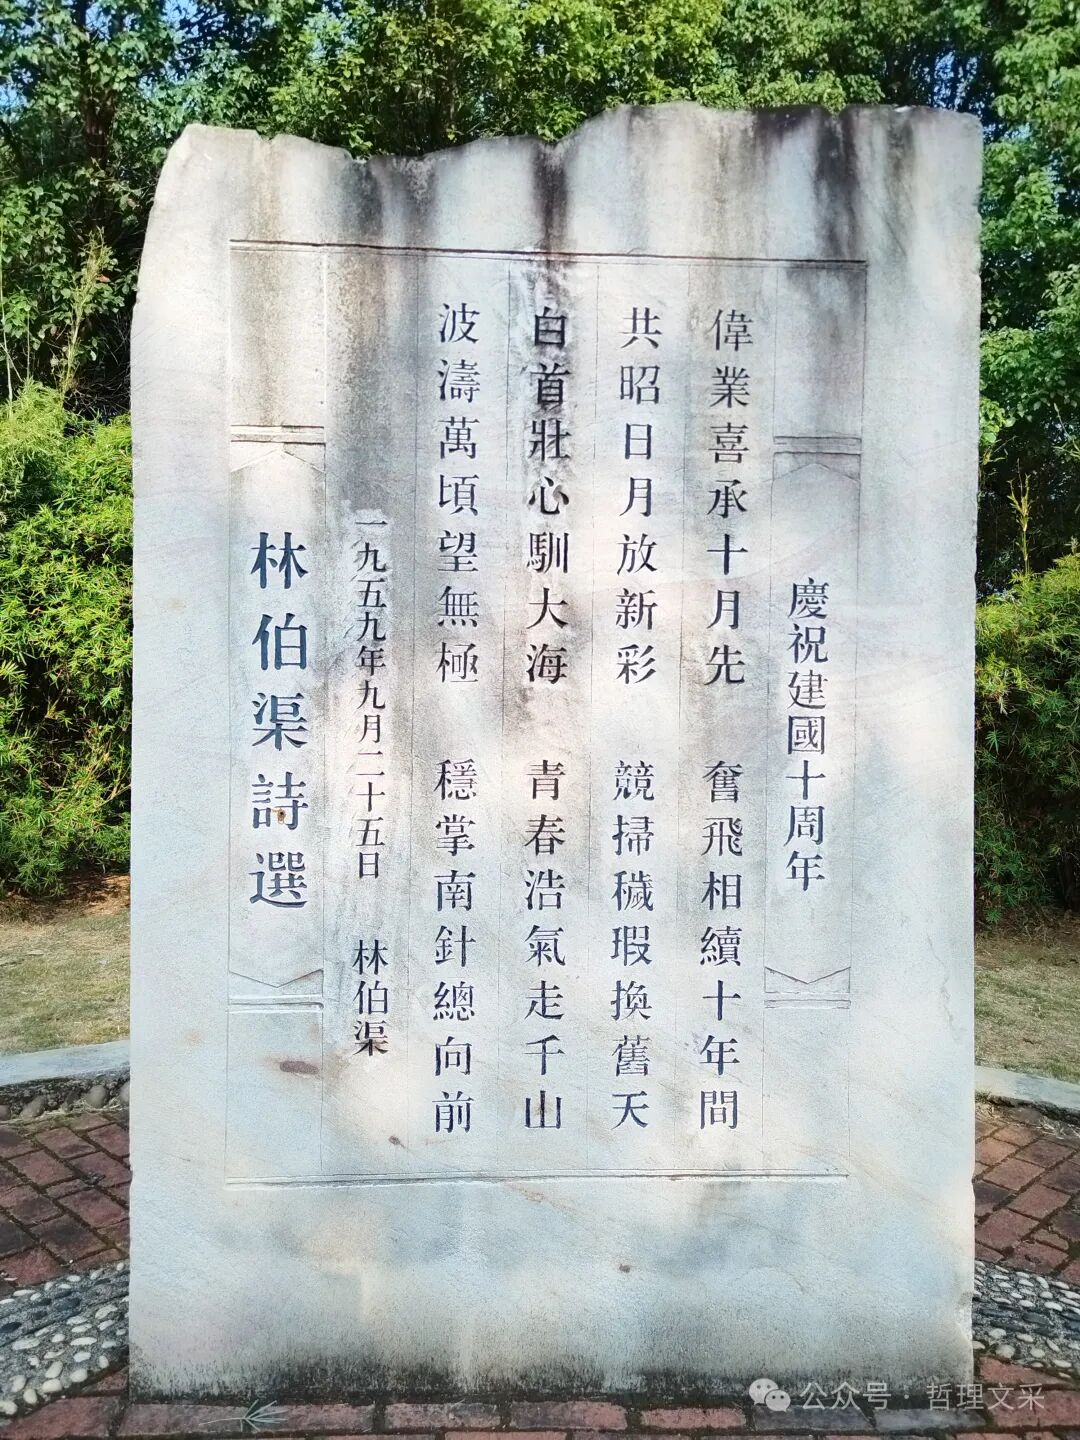 慶祝建國十周年
偉業喜承十月先 奮飛相續十年間
共昭日月放新彩 競掃穢瑕換舊天
白首壯心馴大海 青春浩氣走千山
波濤萬頃望無極 穩掌南針總向前
一九五九年九月二十五日 林伯渠
林伯渠詩選
公众号·哲理文采